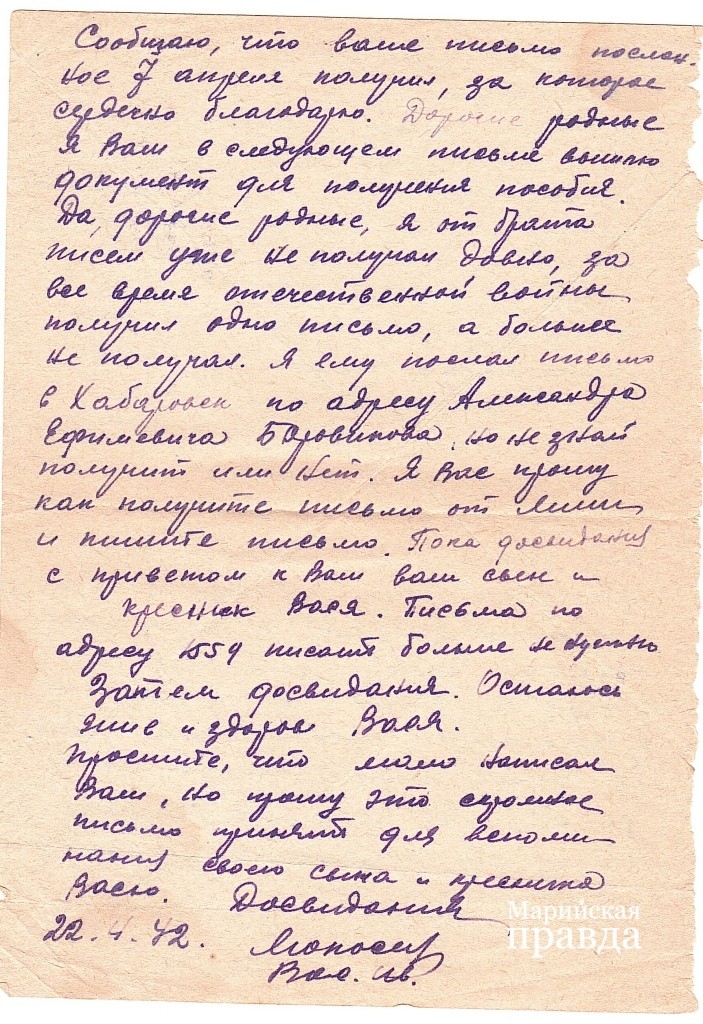 Сообщаю, что ваше письмо послан.
ное 7 апреля получил, за которое
сердечно благодарю. Дорогие родные
я Вам в следующем письме вышлю
документ для получения пособия.
Да, дорогие родные, я от брата
писем уже не получал давно, за
все время отечественной войны
получил одно письмо, а больше
не получал. Я ему послал письмо
в Хабаровск по адресу Александра
Ефимевича Боровикова, но не знай
получит или нет. Я Вас прошу
как получите письмо от
и пишите письмо. Пока досвидания
с приветом к Вам ваш сын и
кресник Вася. Письма по
адресу 1559 писать больше не нужно
Затем досвидания. Остаюсь
жив и здоров Вася.
Простите, что мало написал
Вам, но прошу это скромное
письмо принять для вспоми
нания своего сына и кресника
Васю. Досвидания
22.4.42.
Вас. Ив.
Марийская
правда